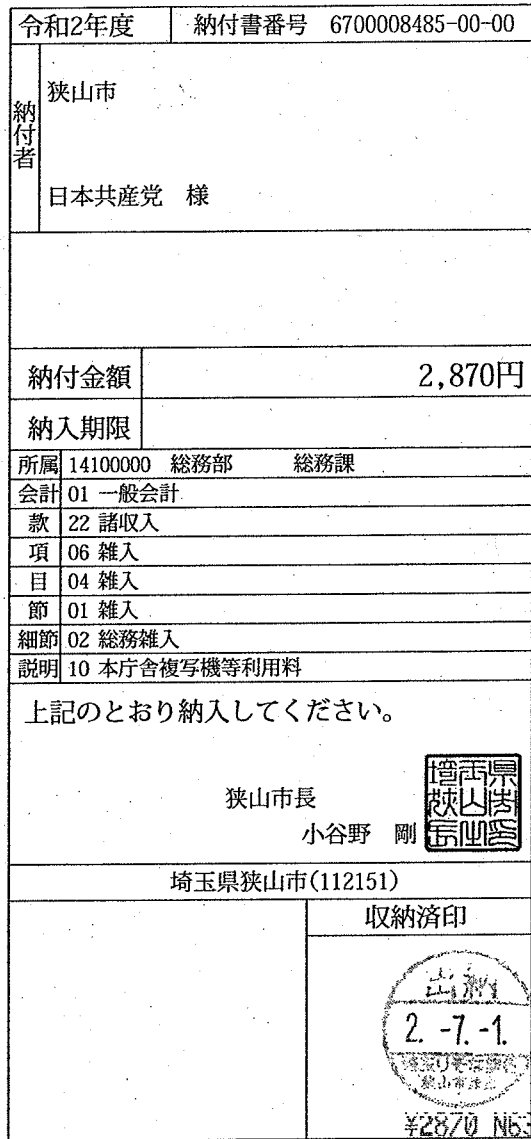 令和2年度 納付書番号 6700008485-00-00
納付者
狭山市
日本共産党 様
納付金額 2,870円
納入期限
所属 14100000 総務部 総務課
会計 01 一般会計
款 22 諸収入
項 06 雑入
目 04 雑入
節 01 雑入
細節 02 総務雑入
説明 10 本庁舎複写機等利用料
上記のとおり納入してください。
狭山市長
小谷野 剛
埼玉県狭山市(112151)
収納済印
出納
2.-7.-1.
¥2870